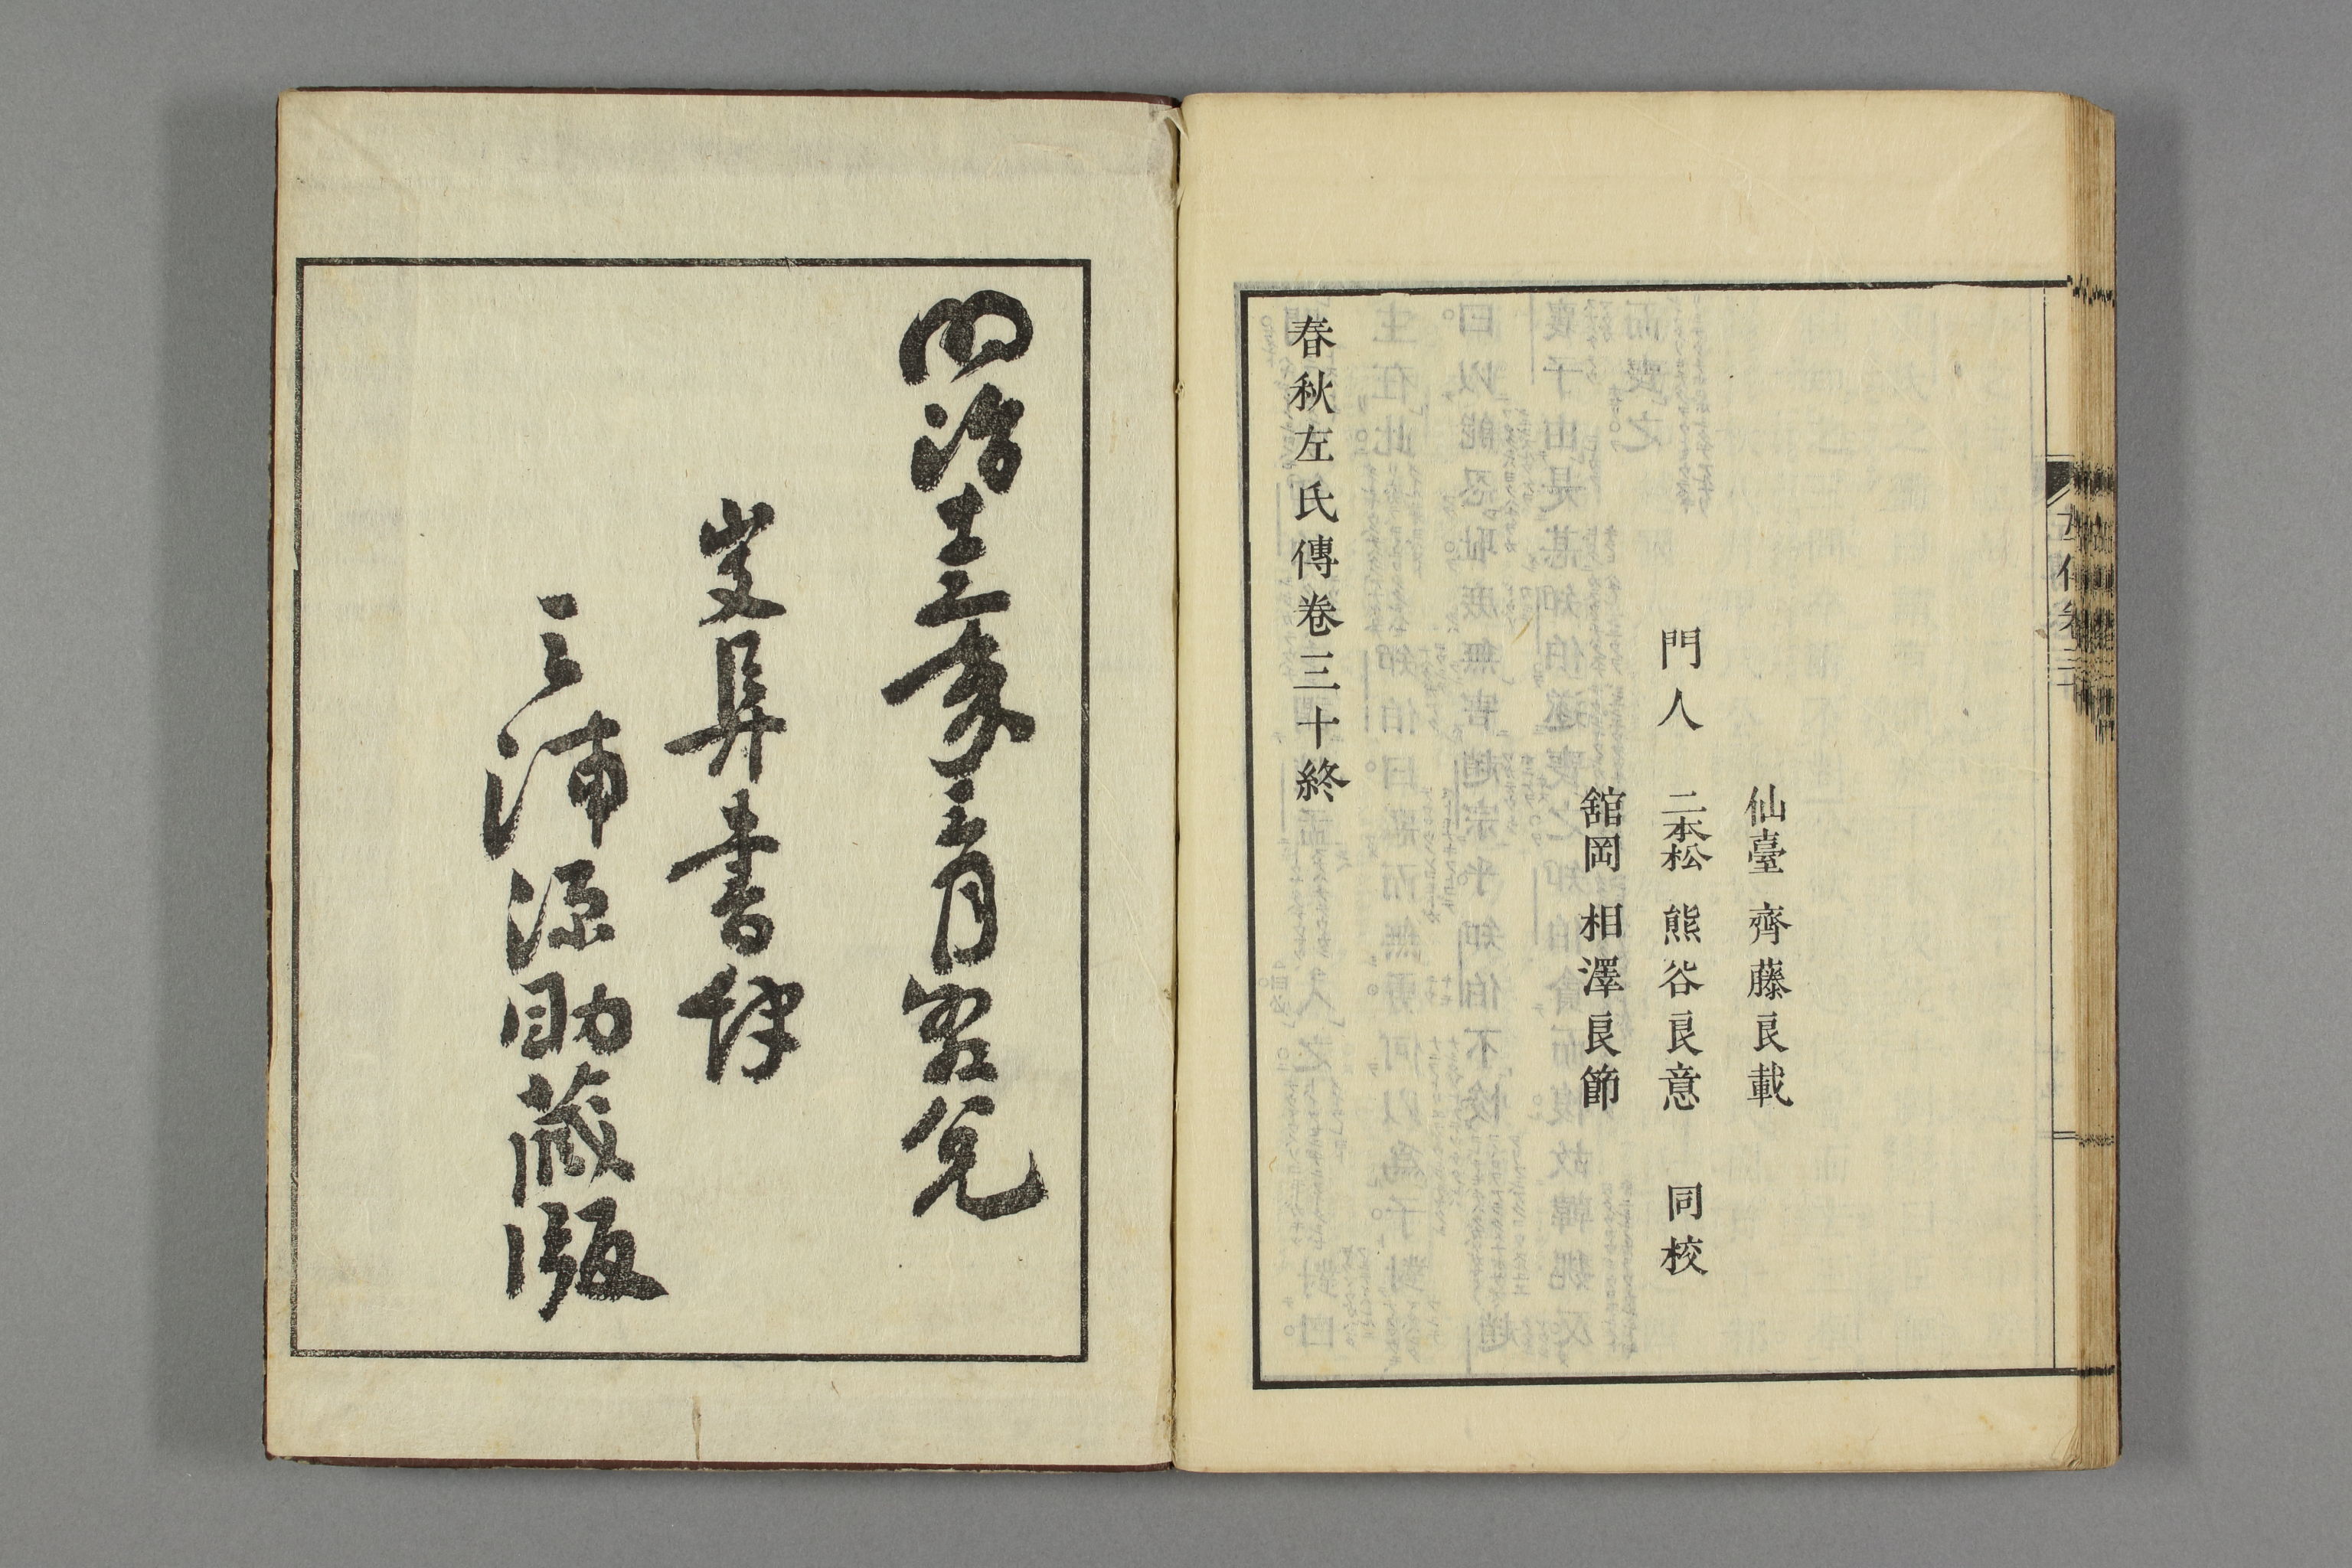 仙臺 齊藤良載
門人 二本松 熊谷良意 同校
舘岡 相澤良節
春秋左氏傳卷三十終
明治十三季三月官免
岐阜書肆
三浦源助藏版